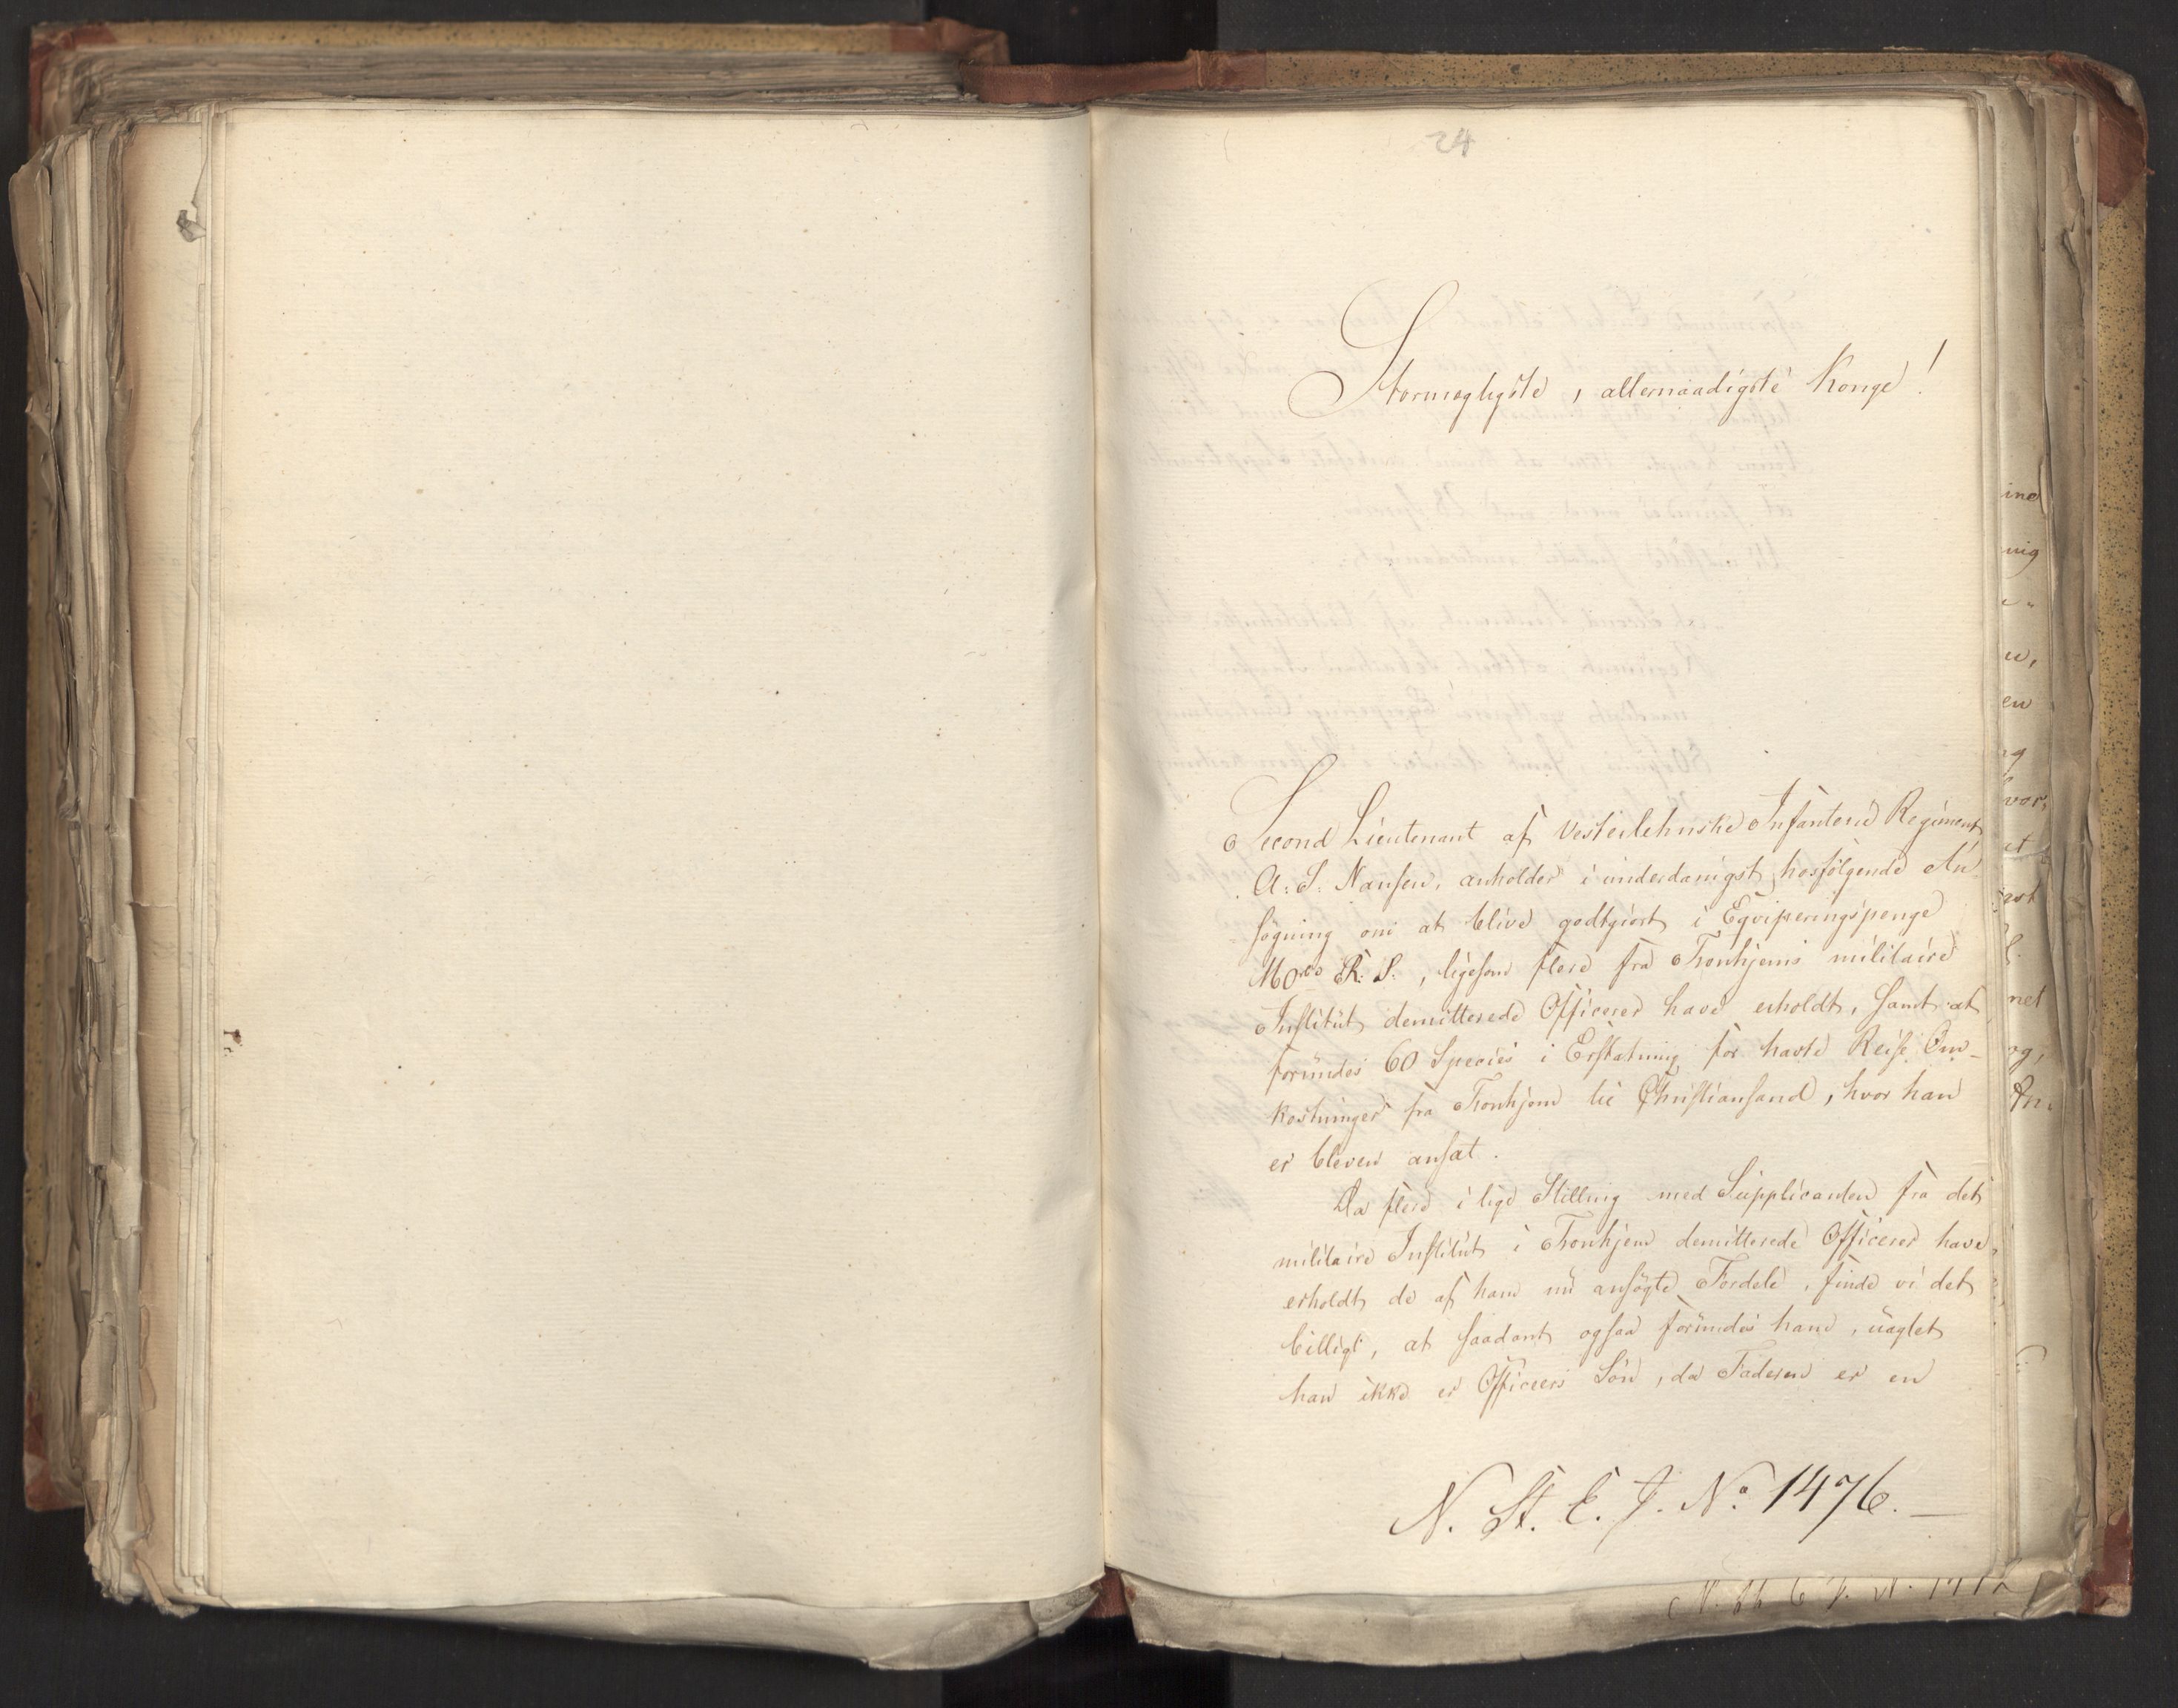 24
Stormægtigste, allernaadigste Konge!
Second Lieutenant af Vesterlehnske Infanterie Regiment
A: S: Nansen, anholder i underdanigst hosfølgende An
søgning om at blive godtgiort i Eqviperingspenge
160 R. S., ligesom flere fra Tronhjems militaire
Institut demitterede Officerer have erholdt, samt at
forundes 60 Species i Erstatning for havte Reise Om-
kostninger fra Tronhjem til Christiansand, hvor han
er bleven ansat.
Da flere i lige Stilling med Supplicanten fra det
militaire Institut i Tronhjem demitterede Officerer have
erholdt de af ham nu ansøgte Fordele, finde vi det
billigt, at saadant ogsaa forundes ham, uagtet
han ikke er Officeers Søn, da Faderen er en
N. St. E. J. No 1476.—